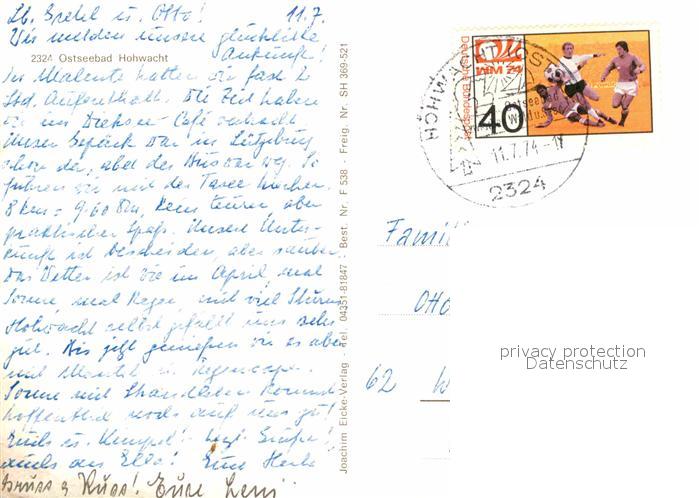 Lb. Gretel u. Otto! 11.7.
Wir melden unsere glückliche
Ankunft!
2324 Ostseebad Hohwacht
In Malente hatten wir fast 2
Std. Aufenthalt. Die Zeit haben
wir im Café verbracht
Unser Gepäck war in Lütjenburg
schon da, aber der Bus war weg. So
fuhren wir mit der Taxe
8 km = 9.60 Dm, kein teurer aber
Spaß. Unsere Unter-
kunft ist bescheiden, aber sauber.
Das Wetter ist wie im April, mal
Sonne mal Regen, und viel Sturm
Hohwacht selbst gefällt uns sehr
gut. Bis jetzt genießen wir es aber
mit Mantel u. Regencape.
Sonne und Strandleben kommt
hoffentlich noch auf uns zu!
Euch u. Grüße!
auch an Ella! Eure
Gruss u Kuss! Eure Leni
Joachim Eicke-Verlag - Tel. 04351-81847 Best. Nr. F 538 - Freig. Nr. SH 369-521
Deutsche Bundespost
WM 74
40
HOHWACHT OSTSEE
11.7.74-17
2324
Famil
Otto
62 W
privacy protection
Datenschutz